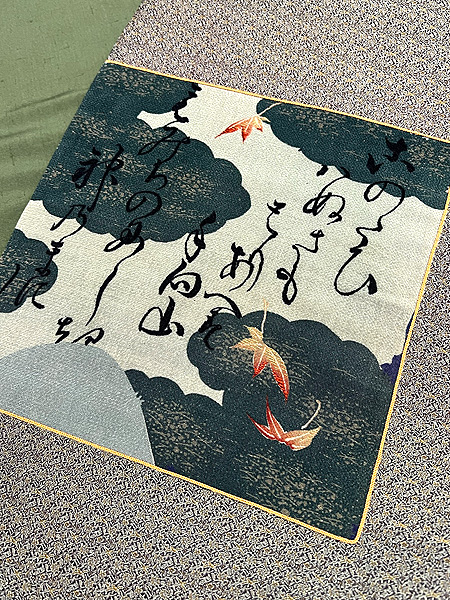 此のたひ
はぬさも
とり
あへす
手向山
もみちのにしき
神乃まに